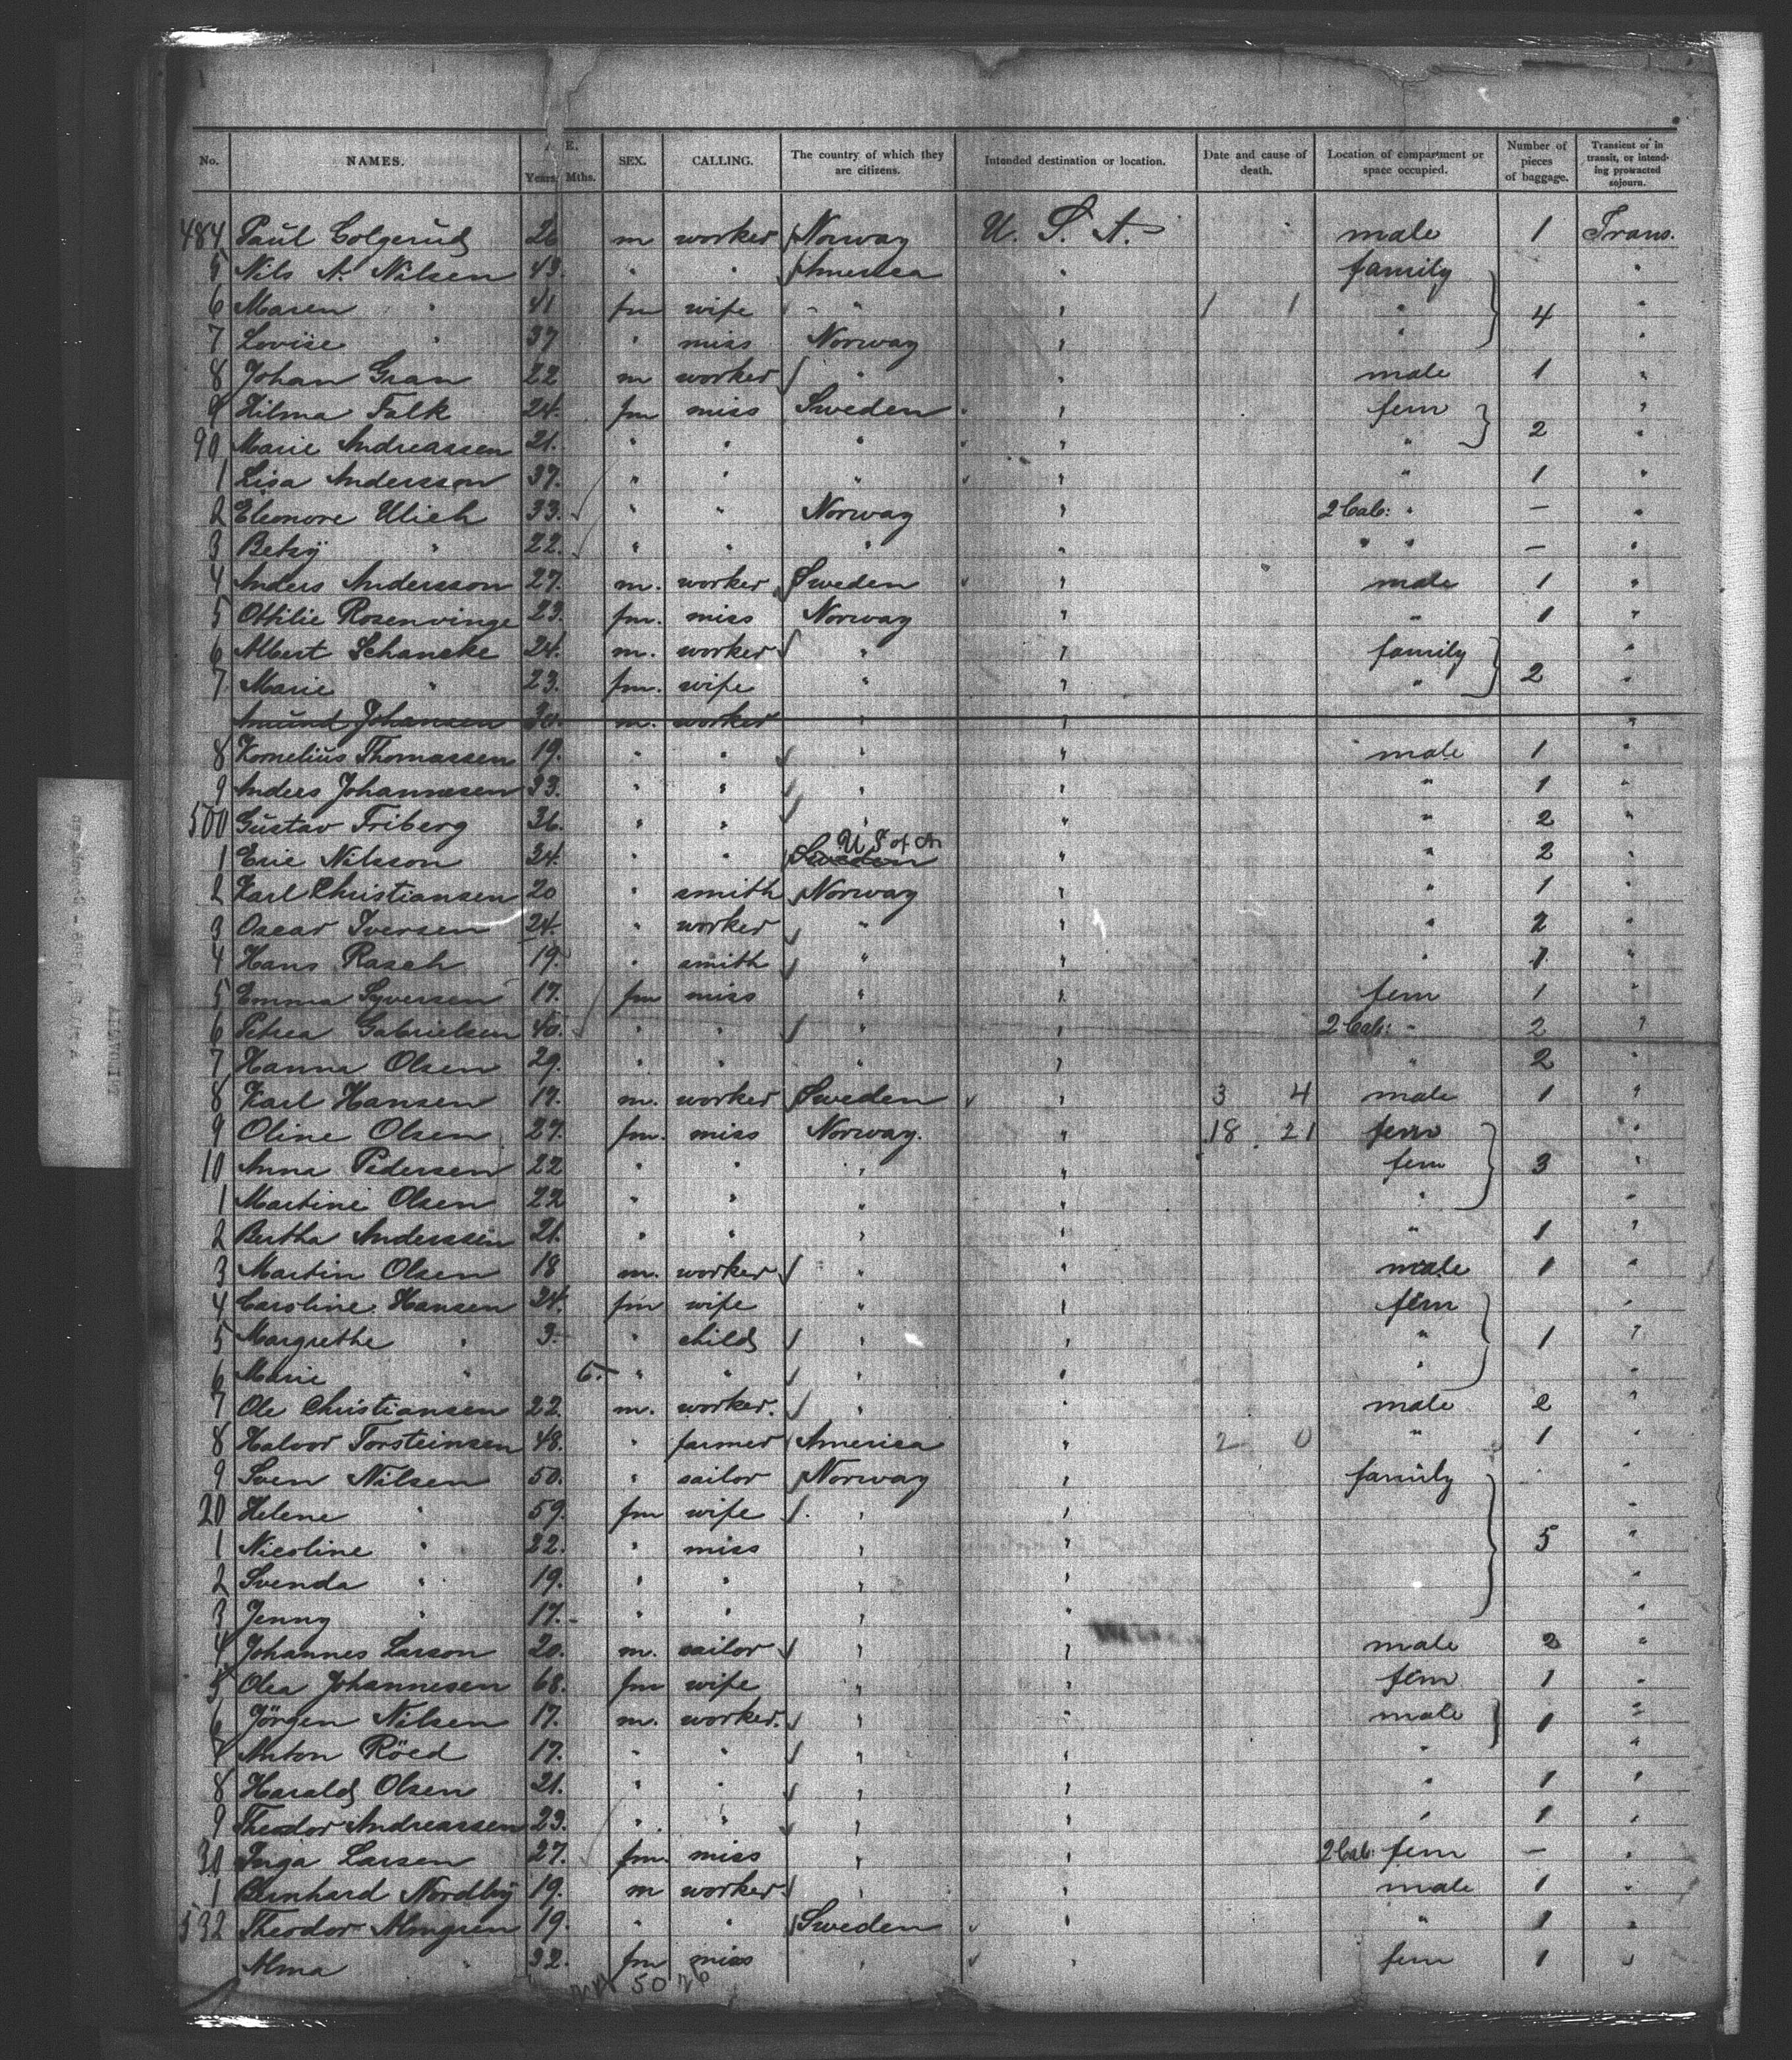 No. NAMES. AGE. Years. Mths. SEX. CALLING. The country of which they are citizens. Intended destination or location. Date and cause of death. Location of compartment or space occupied. Number of pieces of baggage. Transient or in transit, or intending protracted sojourn.
484 Paul Colgerud 26 m worker Norway U. S. A. male 1 Trans.
5 Nils A. Nilsen 43. " " America " family "
6 Maren " 41 fm wife " " 1 1 " 4 "
7 Lovise " 37 " miss Norway " " "
8 Johan Gran 22 m worker " " male 1 "
9 Hilma Falk 24. fm miss Sweden " fem "
90 Marie Andreassen 21. " " " " " 2 "
1 Lisa Andersson 37. " " " " " 1 "
2 Eleonore Ulich 33. " " Norway " 2 Cab: " — "
3 Betsy " 22. " " " " " " — "
4 Anders Andersson 27. m. worker Sweden " male 1 "
5 Ottilie Rosenvinge 23. fm. miss Norway " " 1 "
6 Albert Schancke 24. m. worker " " family "
7 Marie " 23. fm. wife " " " 2 "
Amund Johansen 30. m. worker " " "
8 Kornelius Thomassen 19. " " " " male 1 "
9 Anders Johannesen 33. " " " " " 1 "
500 Gustav Friberg 36. " " " " " 2 "
1 Eric Nilsson 34. " " Sweden U S of A " " 2 "
2 Karl Christiansen 20 " smith Norway " " 1 "
3 Oscar Iversen 24. " worker " " " 2 "
4 Hans Rasch 19. " smith " " " 1 "
5 Emma Syversen 17. fm miss " " fem 1 "
6 Petrea Gabrielsen 40. " " " " 2 Cab: " 2 "
7 Hanna Olsen 29. " " " " " 2 "
8 Karl Hansen 17. m. worker Sweden " 3 4 male 1 "
9 Oline Olsen 27. fm. miss Norway. " 18 21 fem "
10 Anna Pedersen 22 " " " " fem 3 "
1 Martine Olsen 22 " " " " " "
2 Bertha Anderssen 21. " " " " " 1 "
3 Martin Olsen 18 m. worker " " male 1 "
4 Caroline Hansen 24. fm wife " " fem "
5 Margrethe " 3. " child " " " 1 "
6 Marie " 6. " " " " " "
7 Ole Christiansen 22. m. worker. " " male 2 "
8 Halvor Torsteinsen 48. " farmer America " 2 0 " 1 "
9 Sven Nilsen 50. " sailor Norway " family "
20 Helene " 59. fm wife " " "
1 Nicoline " 22. " miss " " 5 "
2 Svenda " 19. " " " " "
3 Jenny " 17. " " " " "
4 Johannes Larson 20. m. sailor " " male 2 "
5 Olea Johannesen 68. fm wife " " fem 1 "
6 Jörgen Nilsen 17. m. worker. " " male 1 "
7 Anton Röed 17. " " " " " "
8 Harald Olsen 21. " " " " " 1 "
9 Theodor Andreassen 23. " " " " " 1 "
30 Inga Larsen 27. fm. miss " " 2 Cab: fem — "
1 Bernhard Nordby 19. m worker " " male 1 "
532 Theodor Almgren 19. " " Sweden " " 1 "
Alma " 32. fm miss " " fem 1 "
50